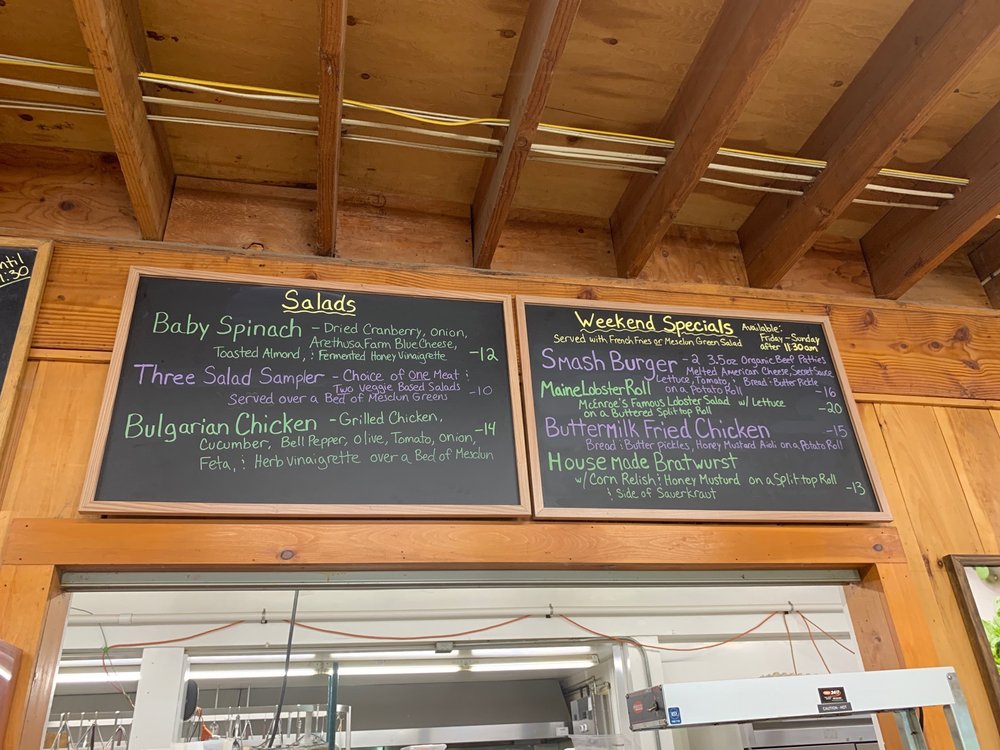 ntil
1:30
Salads
Baby Spinach - Dried Cranberry, onion,
Arethusa Farm Blue Cheese,
Toasted Almond, : Fermented Honey Vinaigrette -12
Three Salad Sampler - Choice of One Meat :
Two Veggie Based Salads -10
Served over a Bed of Mesclun Greens
Bulgarian Chicken - Grilled Chicken, -14
Cucumber, Bell Pepper, Olive, Tomato, onion,
Feta, : Herb Vinaigrette over a Bed of Mesclun
Weekend Specials Available:
Served with French Fries or Mesclun Green Salad Friday - Sunday
after 11:30am
Smash Burger - 2 3.5oz Organic Beef Patties
Melted American Cheese, Secret Sauce
Lettuce, Tomato, : Bread : Butter Pickle
on a Potato Roll -16
Maine Lobster Roll
McEnroe's Famous Lobster Salad w/ Lettuce
on a Buttered Split top Roll -20
Buttermilk Fried Chicken -15
Bread : Butter Pickles, Honey Mustard Aioli on a Potato Roll
House made Bratwurst
w/Corn Relish : Honey Musturd on a Split top Roll
: Side of Sauerkraut -13
CAUTION - HOT